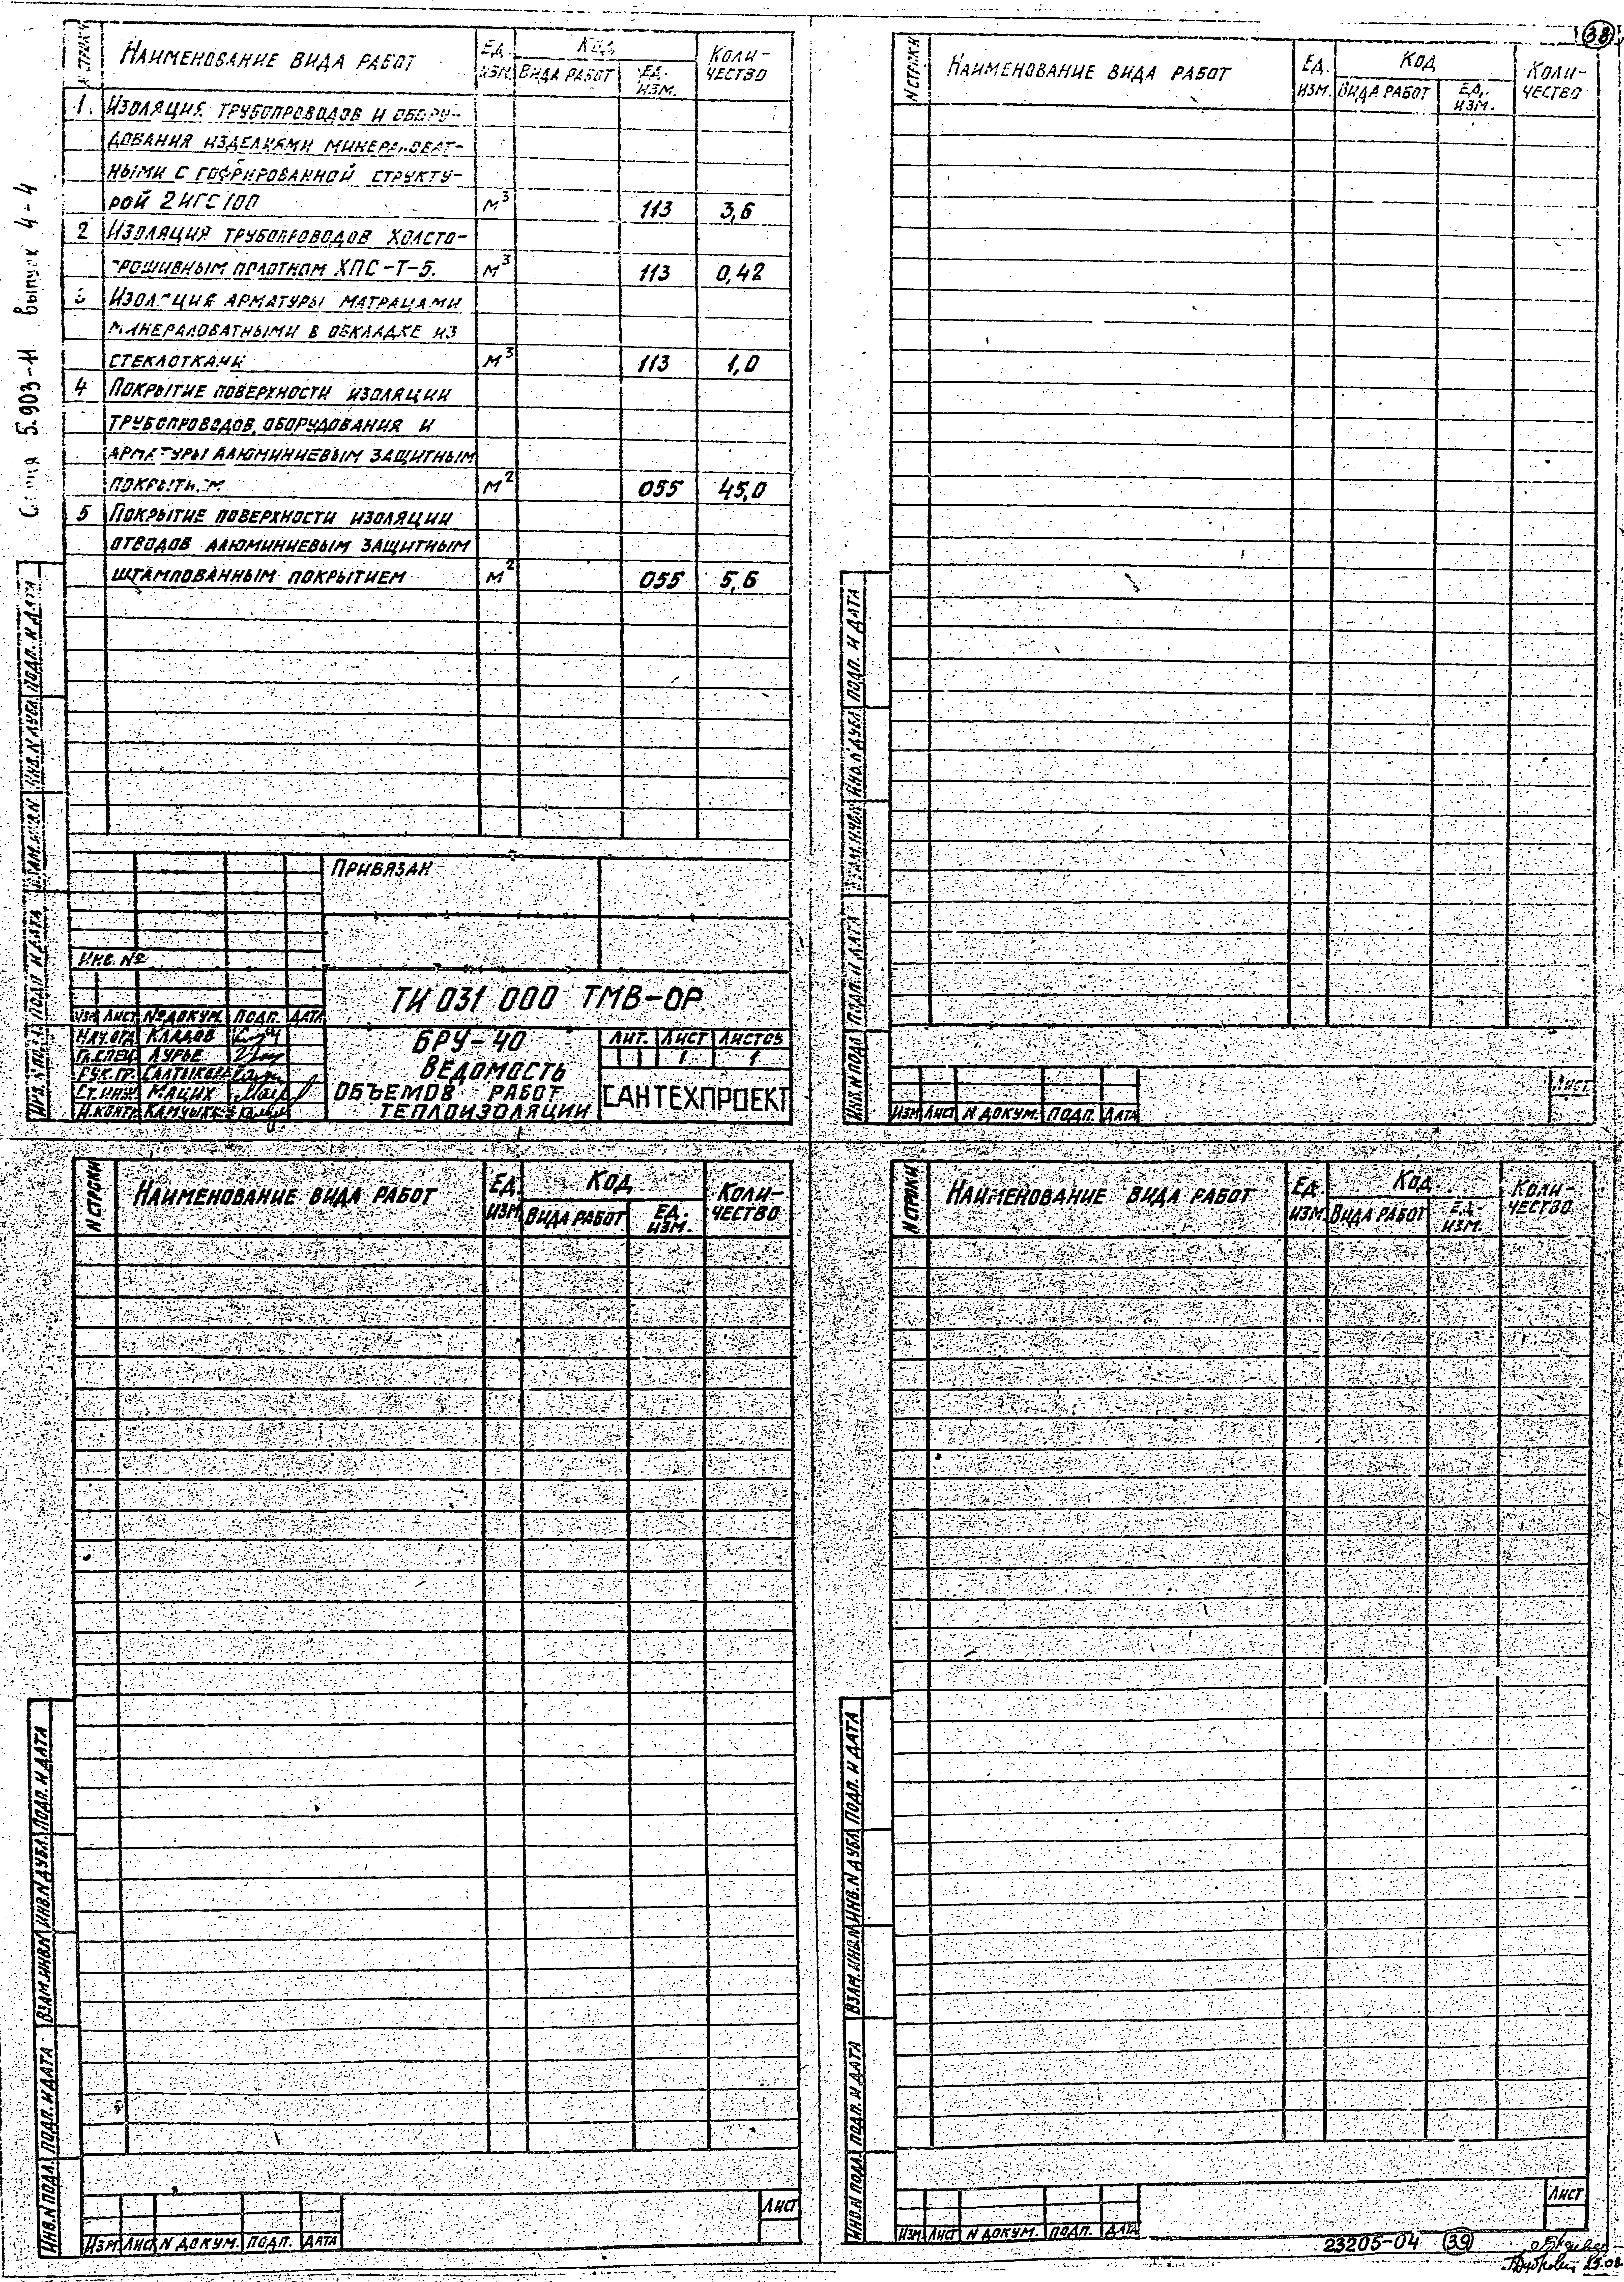 38
выпуск 4-4
5.903-11
Наименование вида работ
Ед. изм.
Код
Вида работ
Ед. изм.
Количество
1. Изоляция трубопроводов и обору-
дования изделиями минераловат-
ными с гофрированной структу-
рой 2ИГС100 м³ 113 3,6
2 Изоляция трубопроводов холсто-
прошивным полотном ХПС-Т-5. м³ 113 0,42
3 Изоляция арматуры матрацами
минераловатными в обкладке из
стеклоткани м³ 113 1,0
4 Покрытие поверхности изоляции
трубопроводов, оборудования и
арматуры алюминиевым защитным
покрытием м² 055 45,0
5 Покрытие поверхности изоляции
отводов алюминиевым защитным
штампованным покрытием м² 055 5,6
Подп. и дата
Инв. N дубл.
Взам. инв. N
Подп. и дата
Инв. N подл.
Привязан
Инв. №
ТИ 031 000 ТМВ-ОР
Изм. Лист № докум. Подп. Дата
Нач. отд. Кладов
Гл. спец. Лурье
Рук. гр.
Ст. инж. Мацих
Н. контр.
БРУ-40
Ведомость
объемов работ
теплоизоляции
Лит. Лист Листов
1 1
САНТЕХПРОЕКТ
N строки
Наименование вида работ
Ед. изм.
Код
Вида работ
Ед. изм.
Количество
Подп. и дата
Инв. N дубл.
Взам. инв. N
Подп. и дата
Инв. N подл.
Изм. Лист N докум. Подп. Дата
Лист
N строки
Наименование вида работ
Ед. изм.
Код
Вида работ
Ед. изм.
Количество
Подп. и дата
Инв. N дубл.
Взам. инв. N
Подп. и дата
Инв. N подл.
Изм. Лист N докум. Подп. Дата
Лист
N строки
Наименование вида работ
Ед. изм.
Код
Вида работ
Ед. изм.
Количество
Подп. и дата
Инв. N дубл.
Взам. инв. N
Подп. и дата
Инв. N подл.
Изм. Лист N докум. Подп. Дата
Лист
23205-04 39